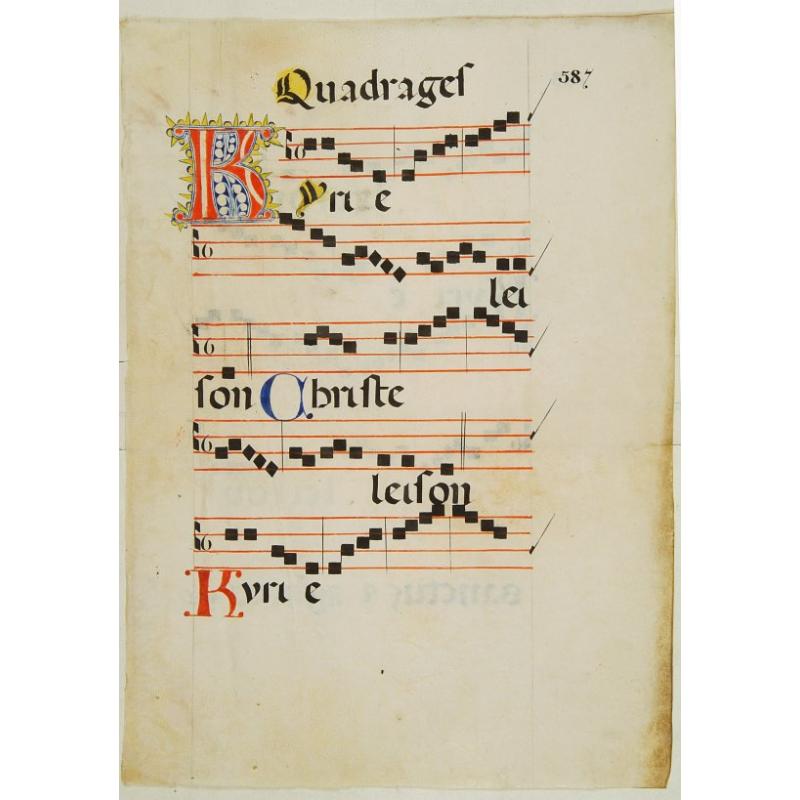 Quadrages
587
Kyrie
lei
son Christe
leison
Kyrie